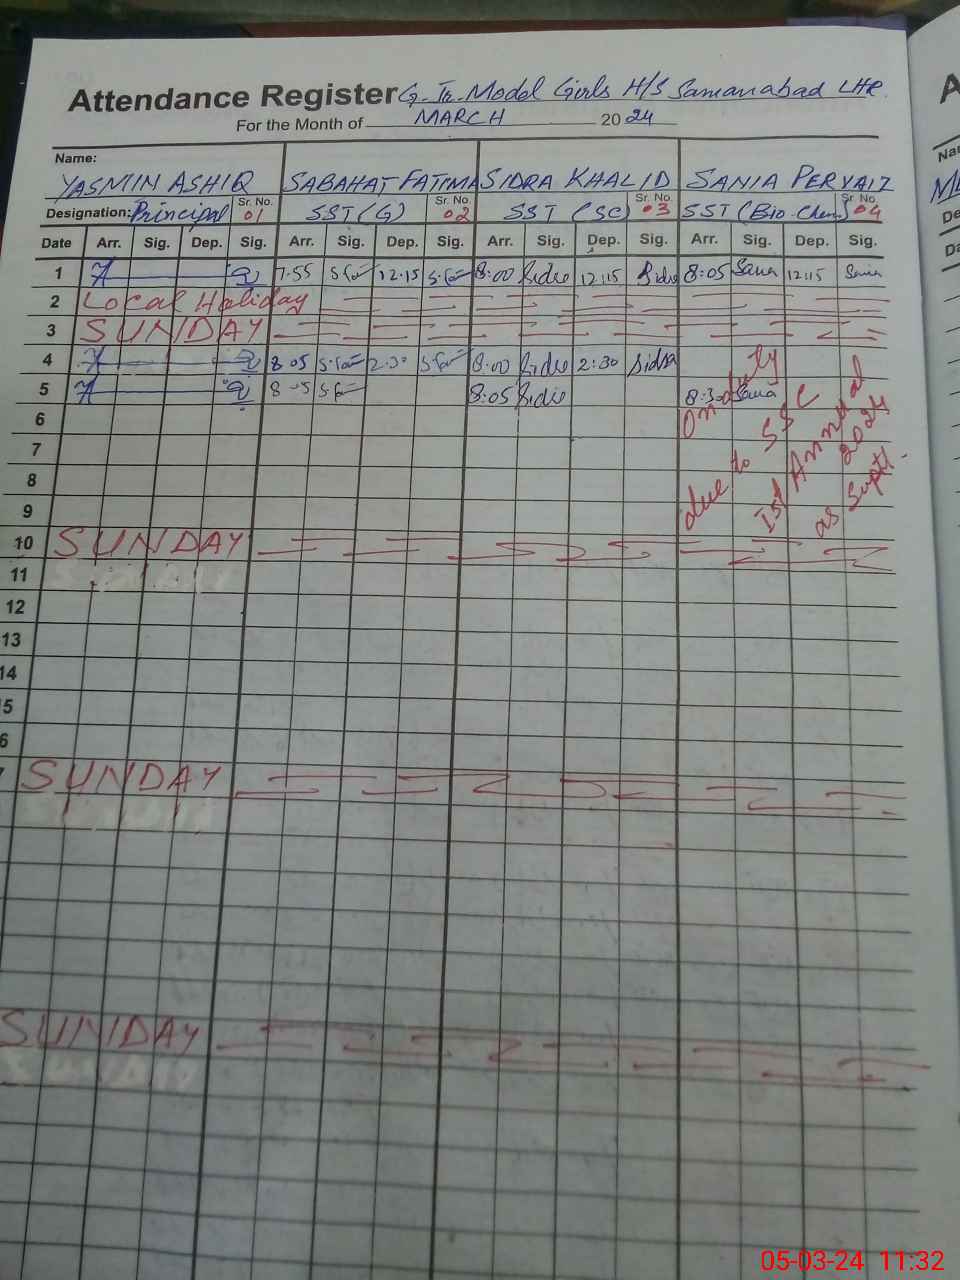 Attendance Register G. Tr. Model Girls H/S Samanabad LHR.
For the Month of MARCH 2024
Name:
YASMIN ASHIQ SABAHAT FATIMA SIDRA KHALID SANIA PERVAIZ
Designation: Principal Sr. No. 01 SST (G) Sr. No. 02 SST (SC) Sr. No. 03 SST (Bio-Chem) Sr. No. 04
Date Arr. Sig. Dep. Sig. Arr. Sig. Dep. Sig. Arr. Sig. Dep. Sig. Arr. Sig. Dep. Sig.
1 7.55 12.15 8:00 Sidra 12:15 Sidra 8:05 Sania 12:15 Sania
2 Local Holiday
3 SUNDAY
4 8.05 2.30 8:00 Sidra 2:30 Sidra
5 8.05 8:05 Sidra 8:30 Sania
6
7
8
9
On duty
due to SSC
Ist Annual
2024
as Suptt.
10 SUNDAY
11
12
13
14
5
6
7 SUNDAY
SUNDAY
A
Na
De
Da
05-03-24 11:32